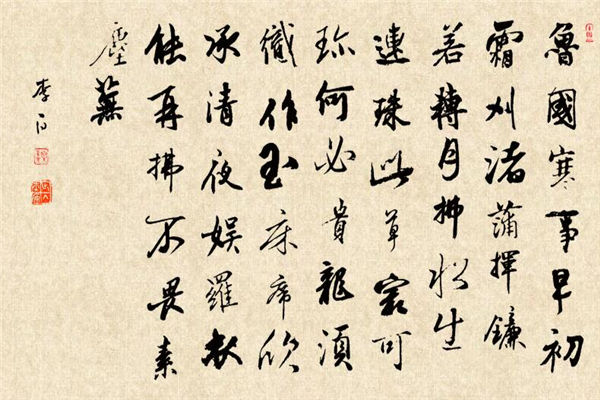 魯國寒事早初
霜刈渚蒲揮鐮
若轉月拂水生
連珠此草最可
珍何必貴龍須
織作玉床席欣
承清夜娛羅衣
能再拂不畏素
塵蕪
李白